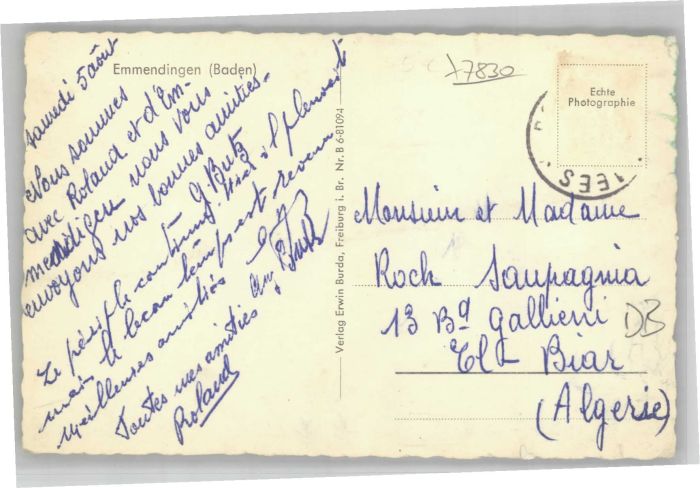 Emmendingen (Baden)
samedi 5 août
Nous sommes
avec Roland et d'Em-
mendigen nous vous
envoyons nos bonnes amitiés.
G Butz
Le périple continu. Hier il pleuvait
mais le beau temps est revenu
meilleures amitiés
Toutes mes amitiés
Roland
Verlag Erwin Burda, Freiburg i. Br. Nr. B 6-81094
x7830
Echte
Photographie
Monsieur et Madame
Roch Saupagnia
13 Bd Gallieni
El-Biar
(Algerie)
DB